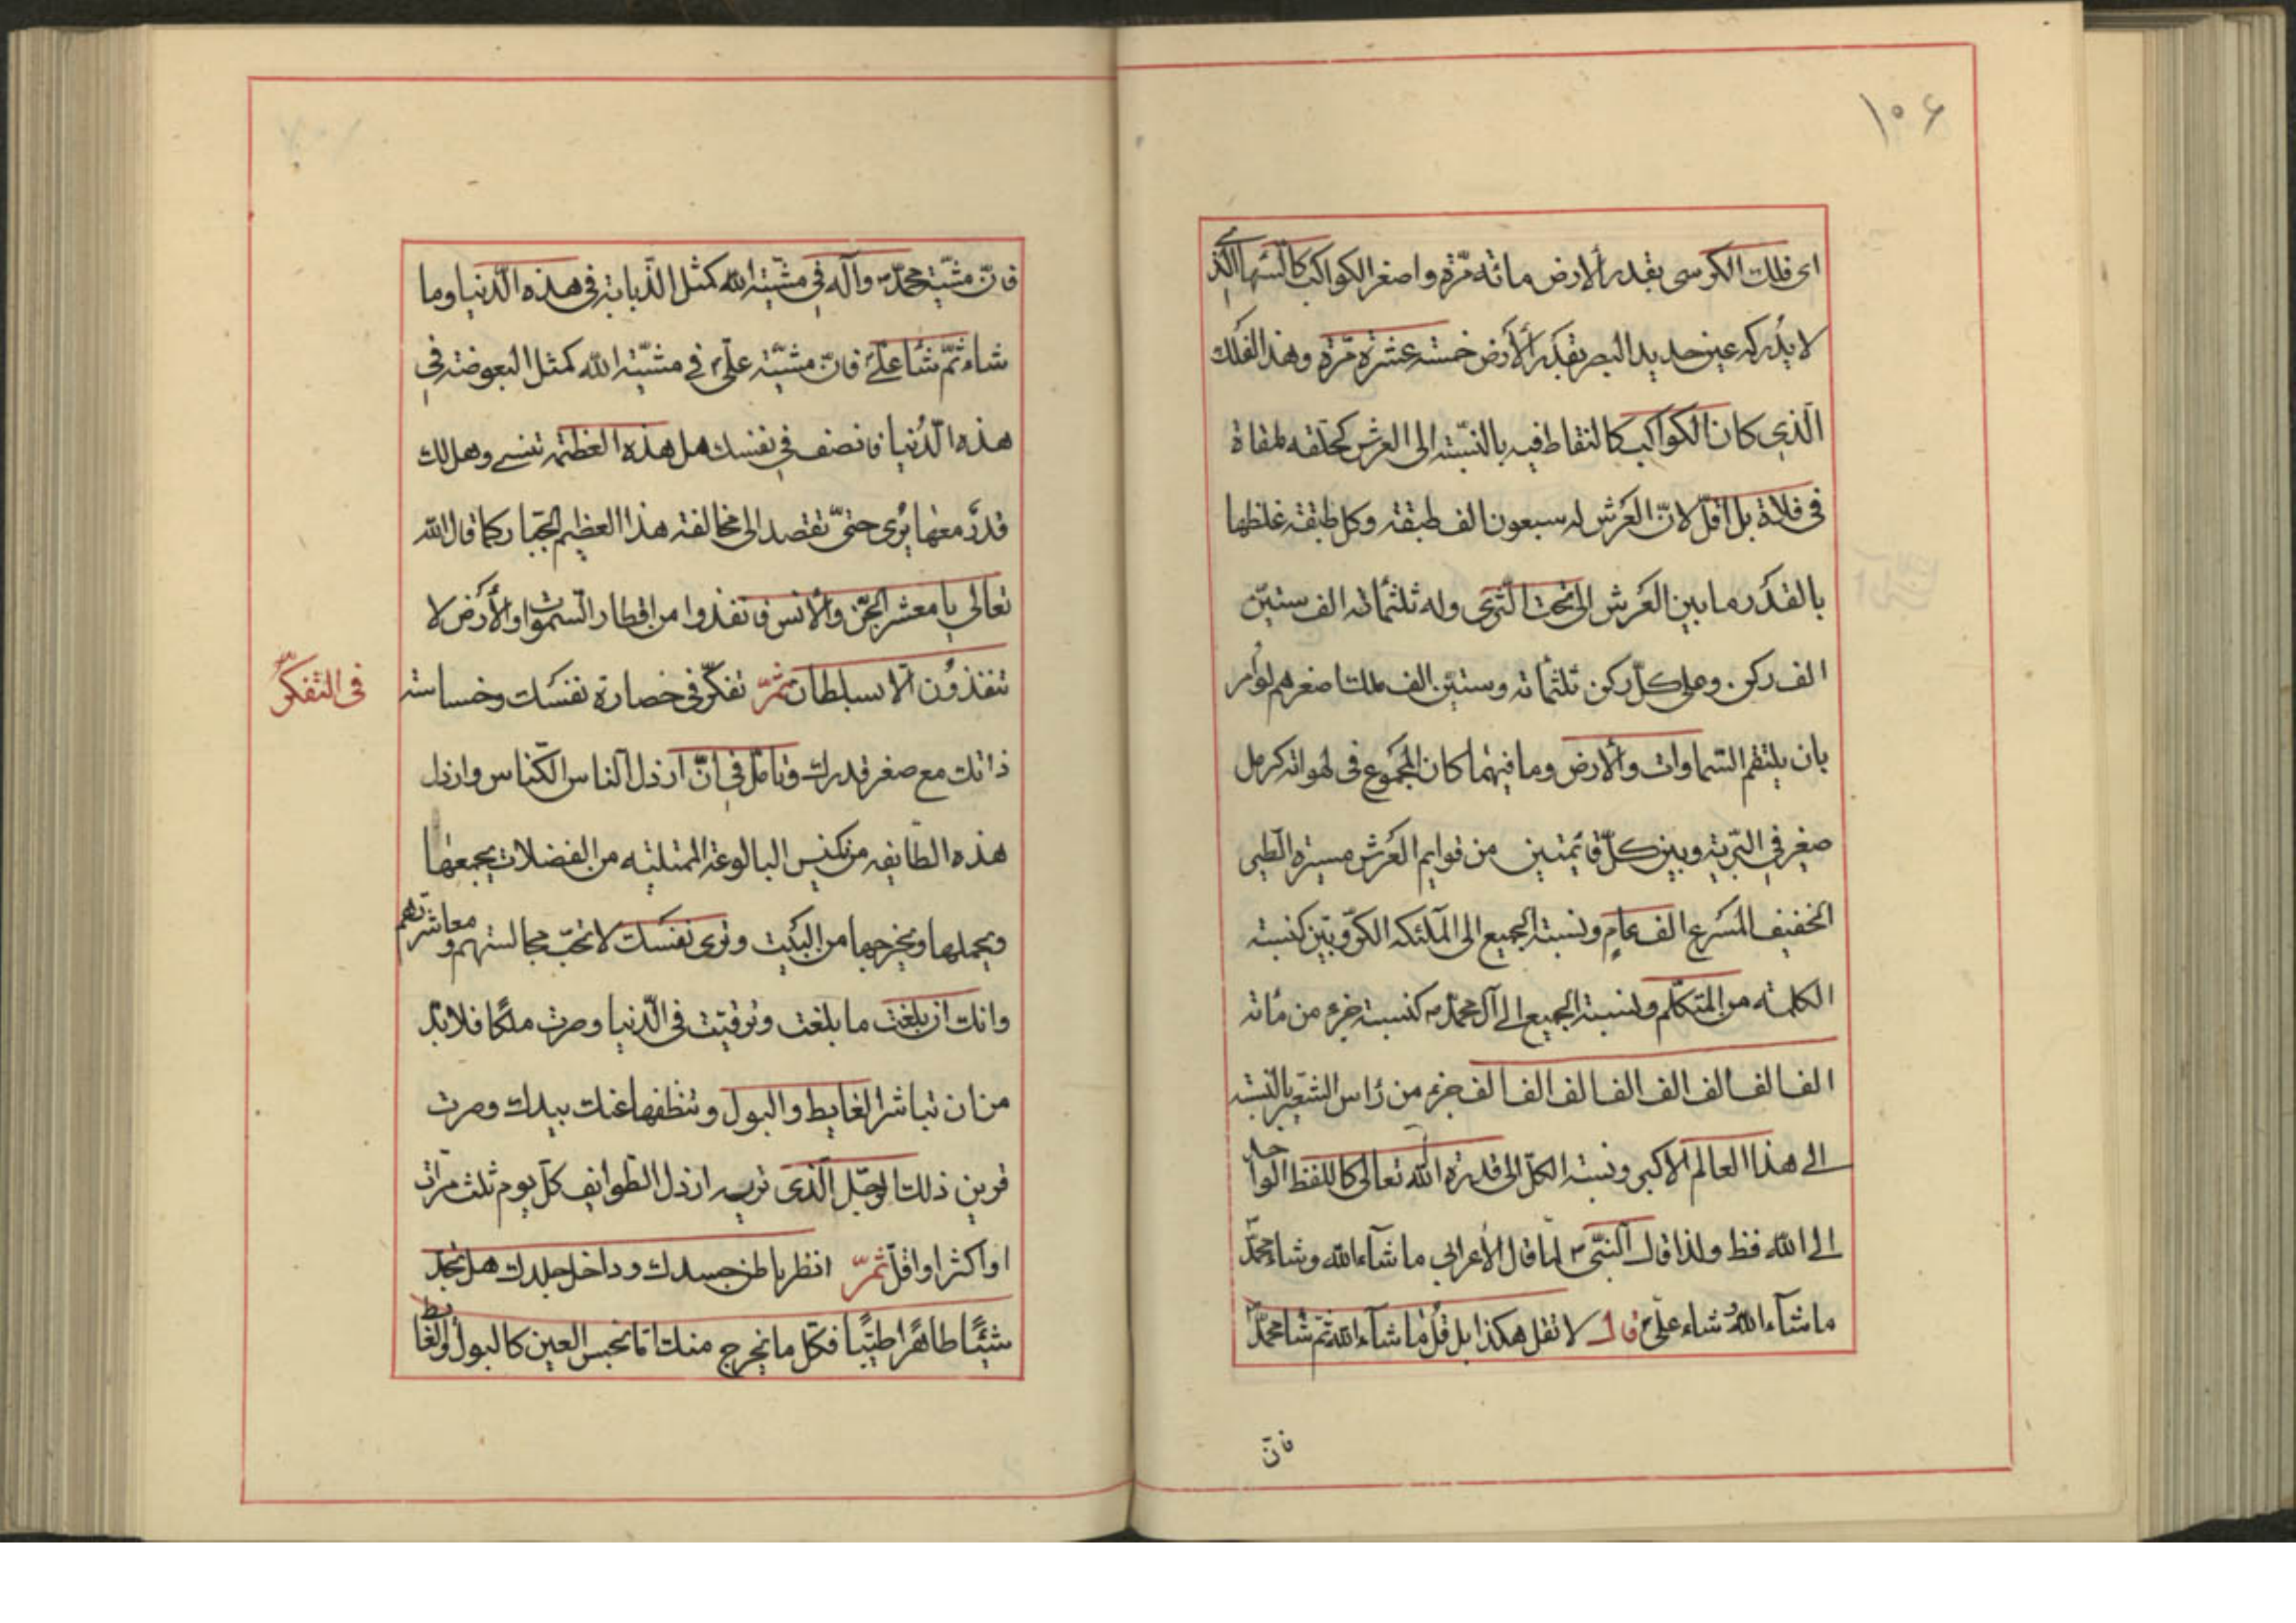 ١٠۶
اى فلك الكرسى بقدر الأرض مائة مرّة واصغر الكواكب كالسها الّذي
لا يُدركه عين حديد البصر بقدَر الأرض خمسة عشرة مرّة وهذا الفلك
الّذى كان الكواكب كالنقاط فيه بالنّسبة الى العرش كحلقه ملقاة
فى فلاة بل اقلّ لانّ العرش له سبعون الف طبقة وكلّ طبقة غلظها
بالقدر ما بين العَرش الى تحت الثّرى وله ثلثمائه الف ستيّن
الف ركن وعلى كلّ ركن ثلثمائه وستيّن الف ملك اصغرهم لو اُمر
بان يلتقم السّماوات والأرض وما فيهما كان المجموع فى لهواته كرمل
صغير في البّرية وبين كلّ قائمتين من قوايم العَرش مسيرة الطير
الخفيف المُسرع الف عام ونسبة الجميع الى الملآئكه الكرّوبيّن كنسبة
الكلمة من المتكلّم ونسبة الجميع الى آل محمّدٍ كنسبة جزء من مائة
الف الف الف الف الف الف الف جزء من رأس الشعير بالنّسبة
الى هذا العالم الاكبر ونسبة الكلّ الى قدرة الله تعالى كاللفظ الواحد
الى الله فظ ولذا قال النبّى ص لمّا قال الأعرابي ما شآء الله وشاء محمّدٌ
ما شآء اللهُ وشاء علىّ قال لا تقل هكذا بل قُل ما شآء الله ثمّ شاء محمّد
فانّ
فانّ مشيّة محمّد وآله في مشيّة الله كمثل الذّبابة فى هذه الّدنيا وما
شاء ثمّ شاء علىّ فانّ مشيّة علىّ فى مشيّة الله كمثل البعوضة في
هذه الّدُنيا فانصف في نفسك هل هذه العظمة تنسى وهل لك
قدرٌ معها يُرى حتىّ تقصد الى مخالفة هذا العظيم الجبّار كما قال الله
تعالى يا معشر الجّن والأنس فانفذوا من اقطار السّموات والأرَض لا
تنفذوُن الّا بسلطان ثمّ تفكّر فى خصارة نفسَك وخساسته
فى التفكّر
ذاتك مع صغر قدرك وتأمّل في انّ ارذل الناس الكنّاس وارذل
هذه الطّايفه من يكنس البالوعة الممتليه من الفضلات يجمعها
ويحملها ويخرجها من البَيت وترى نفسَك لا تحبّ مجالستهم ومعاشرتهم
وانك ان بلغت ما بلغت وترقيّت فى الّدنيا وصرت ملكًا فلا بدّ
من ان تباشر الغايط والبول وتنظّفها عنك بيدك وصرت
قرين ذلك الرجل الّذى تريه ارذل الطّوايف كلّ يوم ثلث مرّات
او اكثر او اقلّ ثمّ انظر باطن جسدك وداخل جلدك هل تجد
شيئًا طاهرًا طيّبًا فكلّ ما يخرج منك امّا نجس العين كالبول والغايط